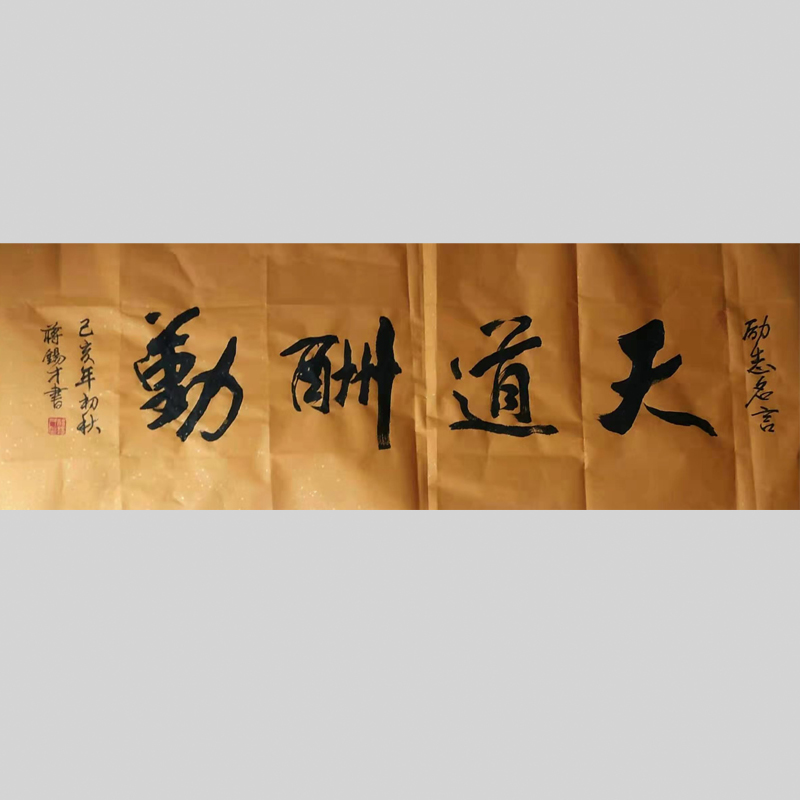 励志名言
天道酬勤
己亥年初秋
蒋锡才書